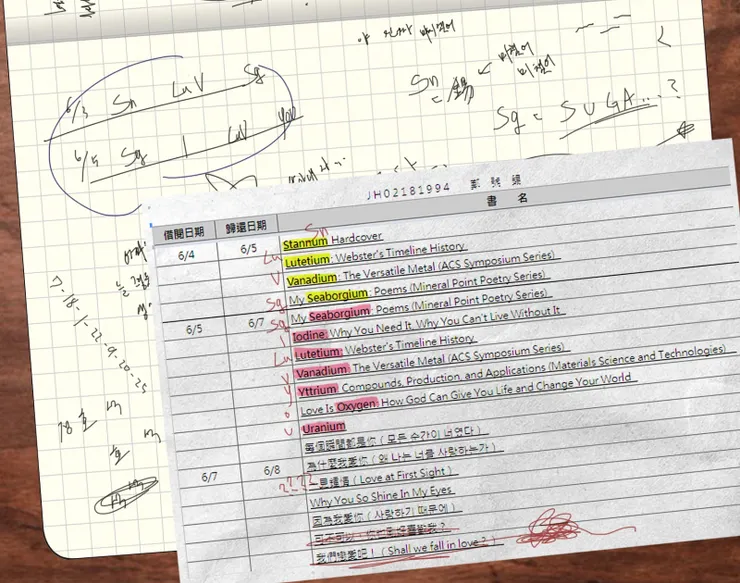 6/3 Sn LuV Sg
Sn
= 錫
Sg = SUGA...?
6/5 Sg I LuV yoU
7-18-1-22-9-20-25
JH02181994 鄭 號 錫
借閱日期 歸還日期 書 名
Sn
6/4 6/5 Stannum Hardcover
Lu Lutetium: Webster's Timeline History
V Vanadium: The Versatile Metal (ACS Symposium Series)
Sg My Seaborgium: Poems (Mineral Point Poetry Series)
6/5 6/7 Sg My Seaborgium: Poems (Mineral Point Poetry Series)
I Iodine: Why You Need It, Why You Can't Live Without It
Lu Lutetium: Webster's Timeline History
V Vanadium: The Versatile Metal (ACS Symposium Series)
y Yttrium: Compounds, Production, and Applications (Materials Science and Technologies)
o Love Is Oxygen: How God Can Give You Life and Change Your World
U Uranium
每個瞬間都是你 ( 모든 순간이 너였다 )
為什麼我愛你 ( 왜 나는 너를 사랑하는가 )
6/7 6/8 ???? 一見鍾情 ( Love at First Sight )
Why You So Shine In My Eyes
因為我愛你 ( 사랑하기 때문에 )
可不可以，你也剛好喜歡我？
我們戀愛吧！ ( Shall we fall in love？)